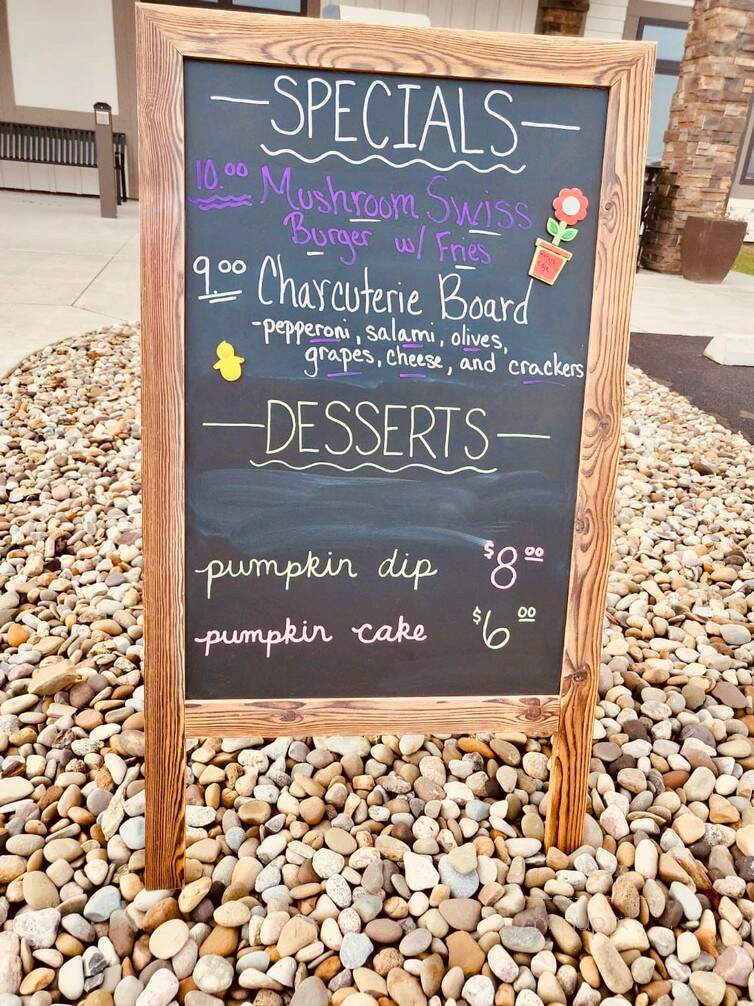 —SPECIALS—
10.00 Mushroom Swiss
Burger w/ Fries
9.00 Charcuterie Board
-pepperoni, salami, olives,
grapes, cheese, and crackers
—DESSERTS—
pumpkin dip $8.00
pumpkin cake $6.00